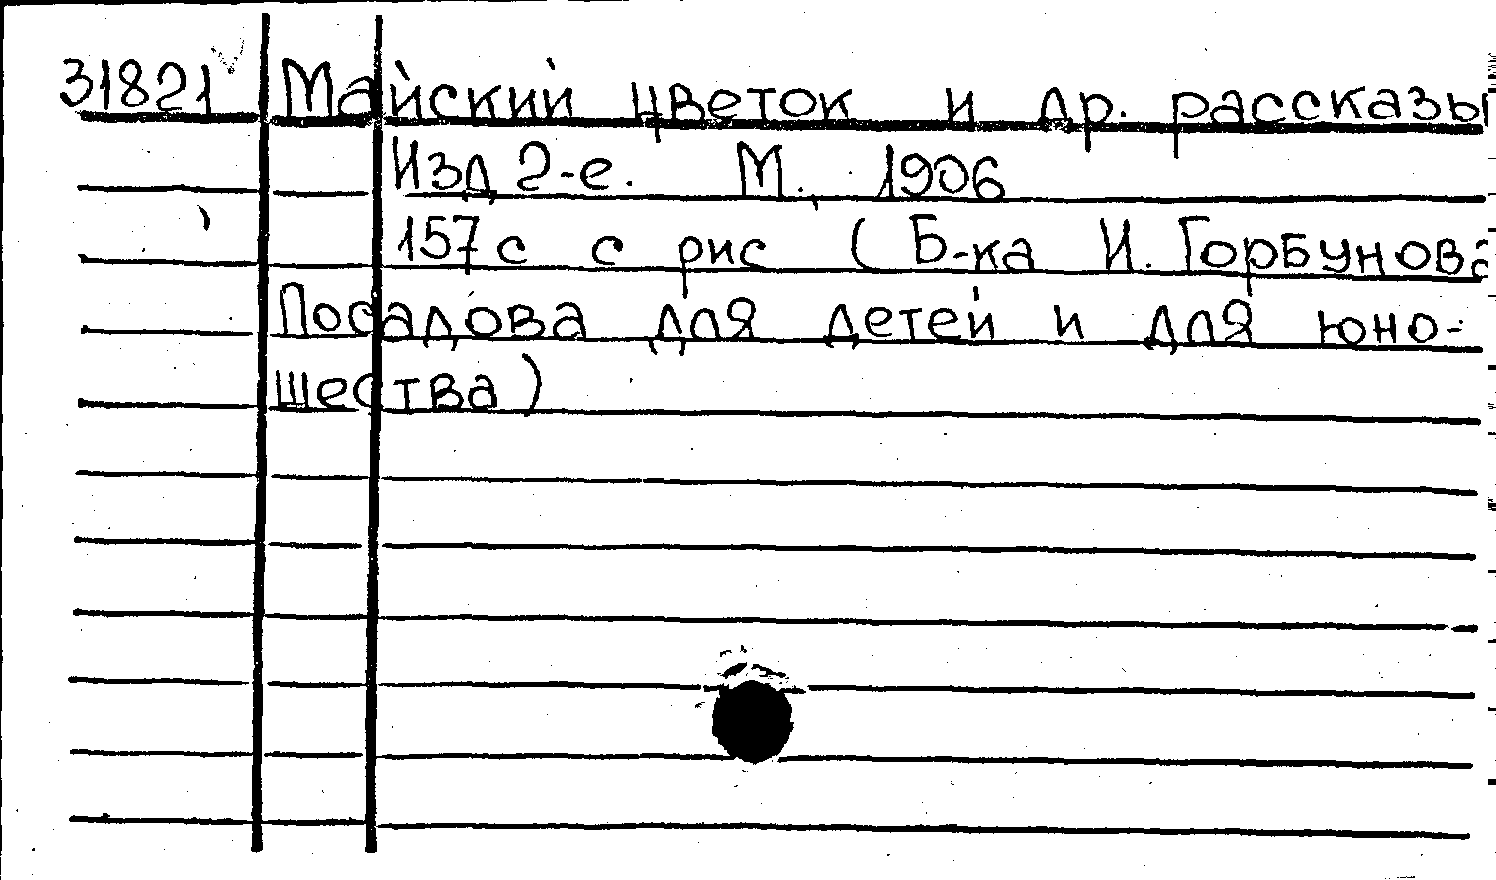 31821 Майский цветок и др. рассказы
Изд 2-е. М., 1906
157 с с рис (Б-ка И. Горбунова
Посадова для детей и для юно-
шества)